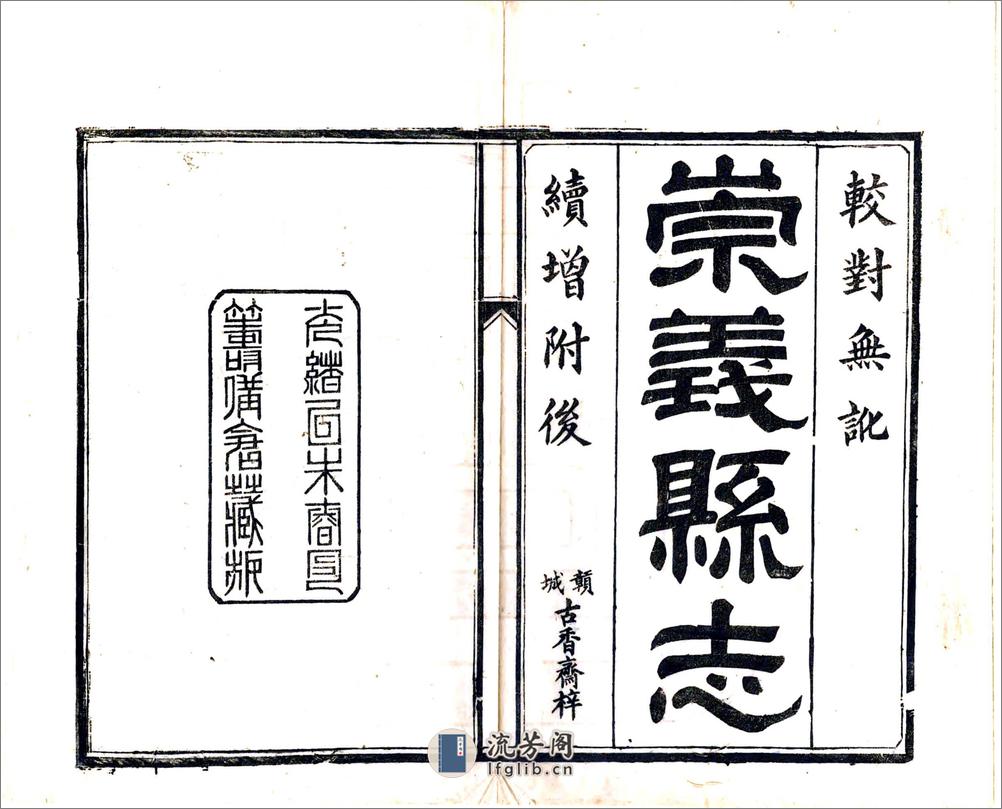 較對無訛
崇義縣志
續增附後
贛城
古香齋梓
光緒乙未春月
備倉藏板
流芳阁
lfglib.cn